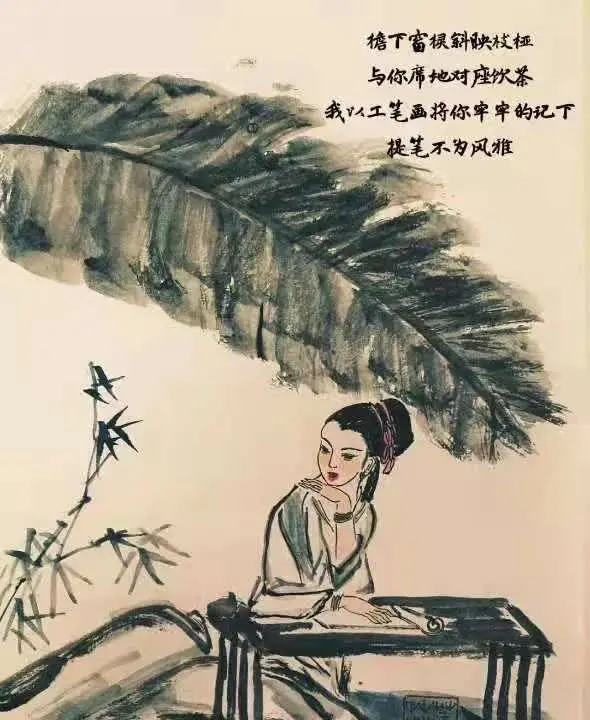 檐下窗棂斜映枝桠
与你席地对座饮茶
我以工笔画将你牢牢的记下
提笔不为风雅